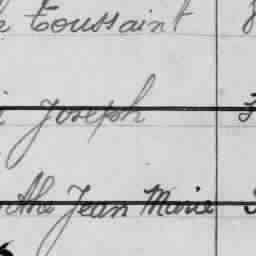 Toussaint
Joseph
Jean Marie